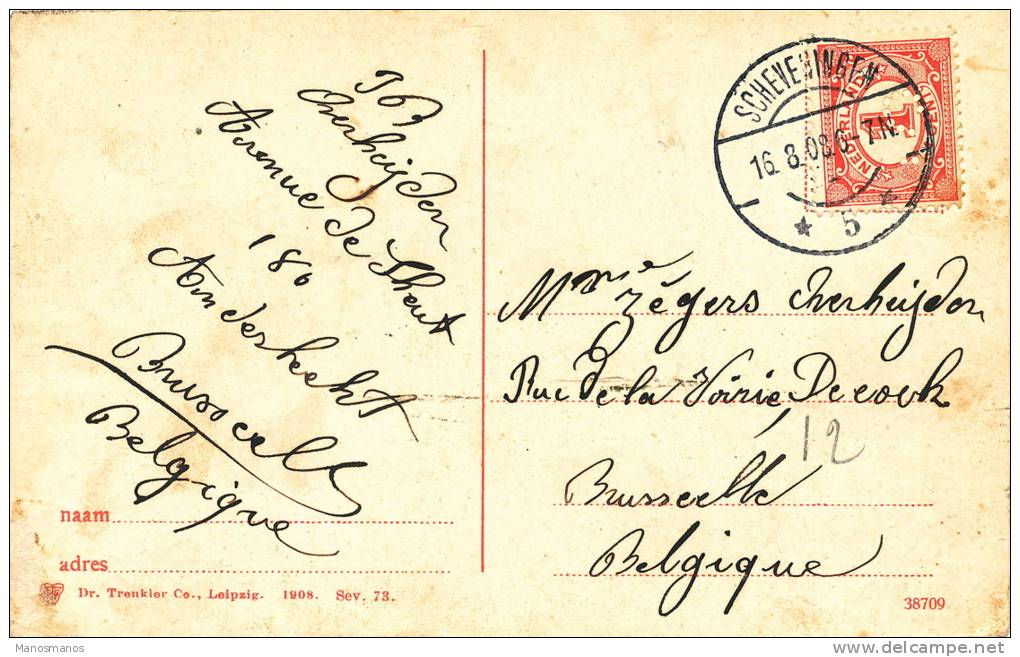 Avenue de Sheut
180
Anderkecht
Brusscells
Belgique
naam
adres
Dr. Trenkler Co., Leipzig. 1908. Sev. 73.
SCHEVENINGEN
16.8.08.6-7N.
5
NEDERLAND
1
Mme zégers
Rue de la Voirié, Decock
12
Brusseelle
Belgique
38709
Manosmanos
www.delcampe.net